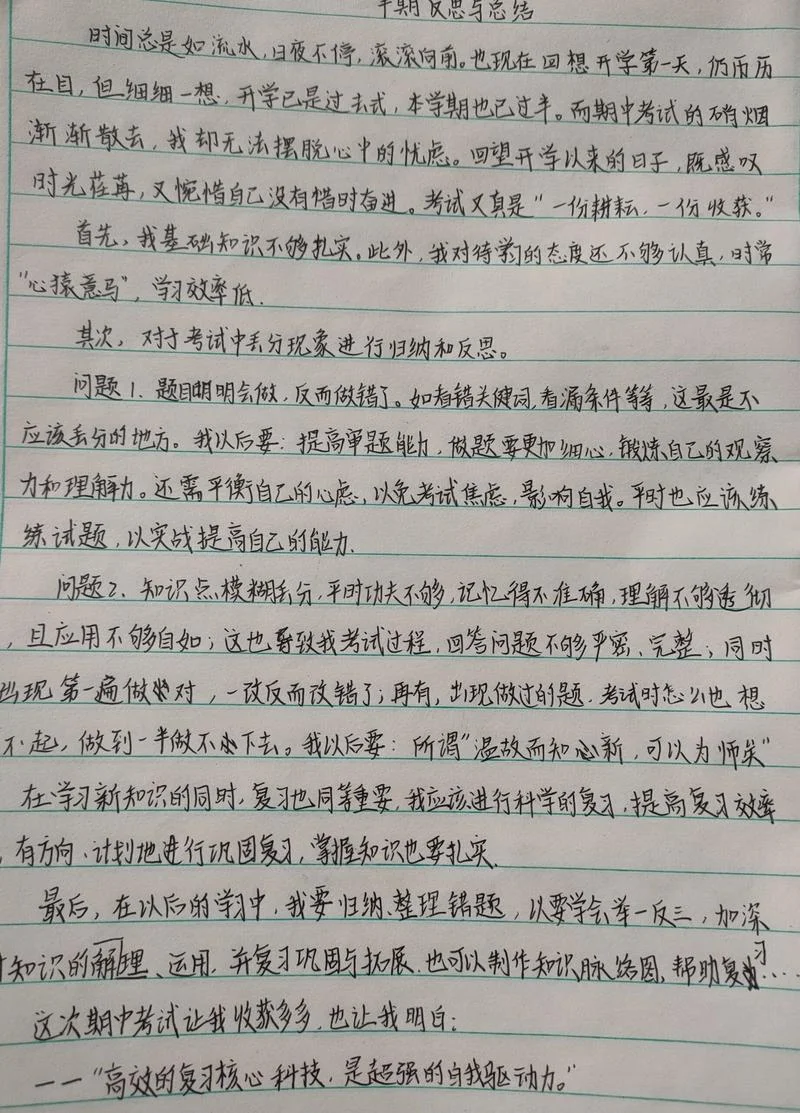 半期反思与总结
时间总是如流水,日夜不停,滚滚向前。也现在回想开学第一天,仍历历
在目,但细细一想,开学已是过去式,本学期也已过半。而期中考试的硝烟
渐渐散去,我却无法摆脱心中的忧虑。回望开学以来的日子,既感叹
时光荏苒,又惋惜自己没有惜时奋进。考试又真是“一份耕耘,一份收获。”
首先,我基础知识不够扎实。此外,我对待学习的态度还不够认真,时常
“心猿意马”,学习效率低.
其次,对于考试中丢分现象进行归纳和反思。
问题1、题目明明会做,反而做错了。如看错关键词,看漏条件等等,这最是不
应该丢分的地方。我以后要:提高审题能力,做题要更加细心,锻炼自己的观察
力和理解力。还需平衡自己的心虑,以免考试焦虑,影响自我。平时也应该练
练试题,以实战提高自己的能力.
问题2、知识点模糊丢分,平时功夫不够,记忆得不准确,理解不够透彻
,且应用不够自如;这也导致我考试过程,回答问题不够严密、完整;同时
出现第一遍做对,一改反而改错了;再有,出现做过的题.考试时怎么也想
不起,做到一半做不下去。我以后要:所谓“温故而知新,可以为师矣”
在学习新知识的同时,复习也同等重要,我应该进行科学的复习,提高复习效率
,有方向、计划地进行巩固复习,掌握知识也要扎实.
最后,在以后的学习中,我要归纳、整理错题,以要学会举一反三,加深
对知识的理解、运用,并复习巩固与拓展.也可以制作知识脉络图,帮助复习……
这次期中考试让我收获多多,也让我明白:
——“高效的复习核心科技,是超强的自我驱动力。”